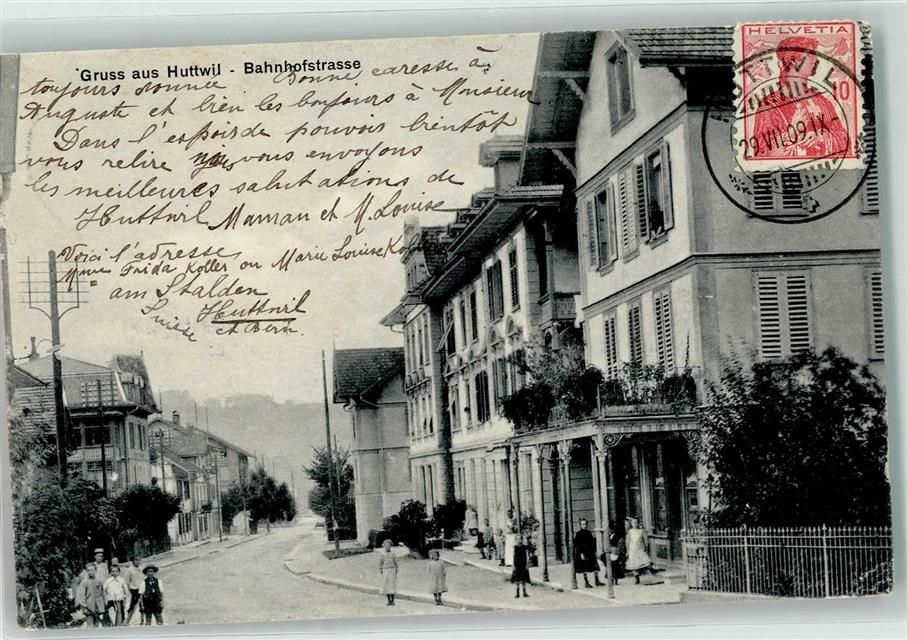 Gruss aus Huttwil - Bahnhofstrasse
HELVETIA
10
HUTTWIL
29.VII.09.IX-
toujours donnée Bonne caresse à
Auguste et bien les bonjours à Monsieur
Dans l'espoir de pouvoir bientôt
vous relire vous envoyons
les meilleures salutations de
Huttwil Maman et M. Louise
Voici l'adresse
Mme Frida Koller ou Marie Louise Kol
am Stalden
Huttwil
Suisse ct Bern.